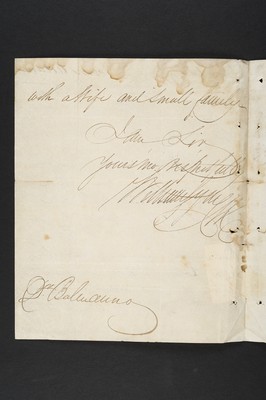 with a Wife and small family
I am Sir
Yours mo. respectfully
William
Dr. Balmanno